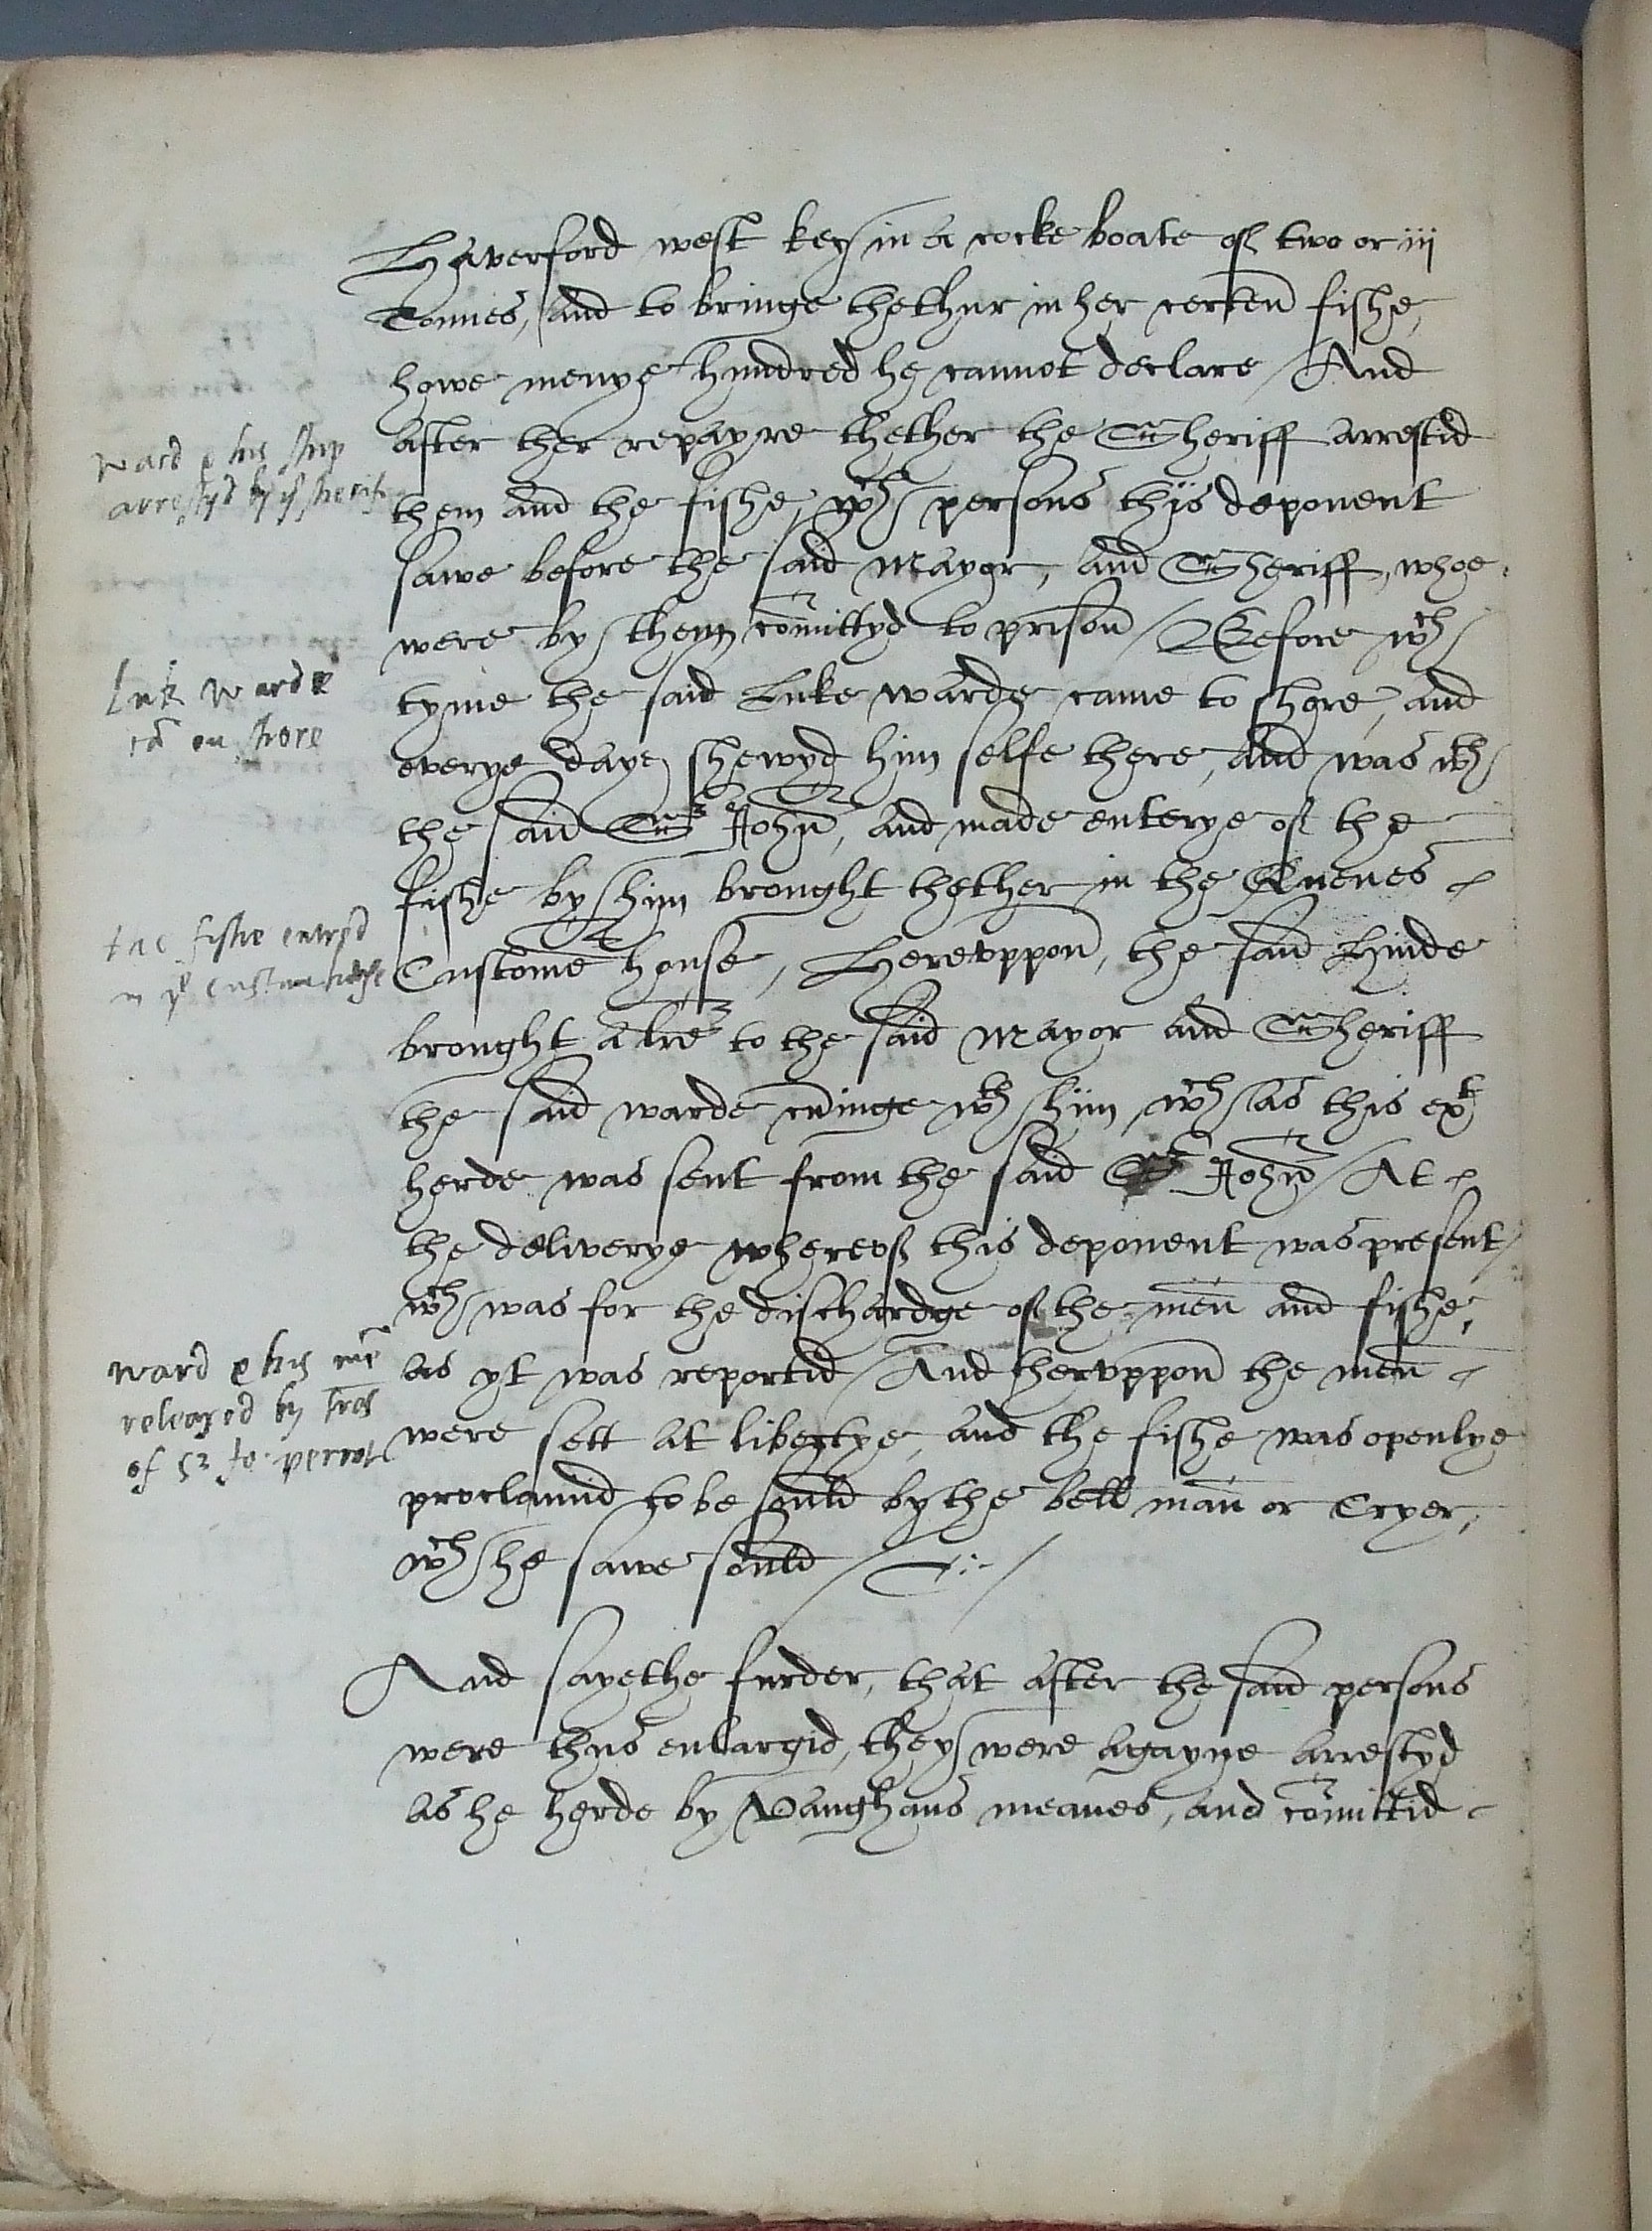 Haverford west key in a cocke boate of two or iij
Tonnes, and to bringe thethur in her certen fishe,
howe menye hundred he cannot declare / And
ward & his ship
arrestyd by ye sherif
after ther repayre thether the Sheriff arrestid
them and the fishe, wch persons thys deponent
sawe before the said Mayor, and Sheriff, whoe
were by them comittyd to prison / Before wch
Luk warde
cā on shore
tyme the said Luke warde came to shore, and
everye daye shewyd him selfe there, and was wth
the said Sr John, and made enterye of the
fishe by him brought thether in the Quenes
the fishe entryd
in ye custum howse
Custome house, Herevppon, the said Hinde
brought a lre to the said Mayor and Sheriff
the said warde cominge wth him, wch as this ext
herde was sent from the said Sr John / At
the deliverye whereof this deponent was present /
wch was for the dischardge of the men and fishe,
ward & his mē
releasyd by lres
of Sr Jo. perrot
as yt was reportid / And thervppon the men
were sett at libertye, and the fishe was openlye
proclaimid to be sould by the bell man or Cryer,
wch he sawe sould /
And sayethe furder, that after the said persons
were thus enlargid, they were agayne arrestyd
as he herde by Vaughans meanes, and comittid